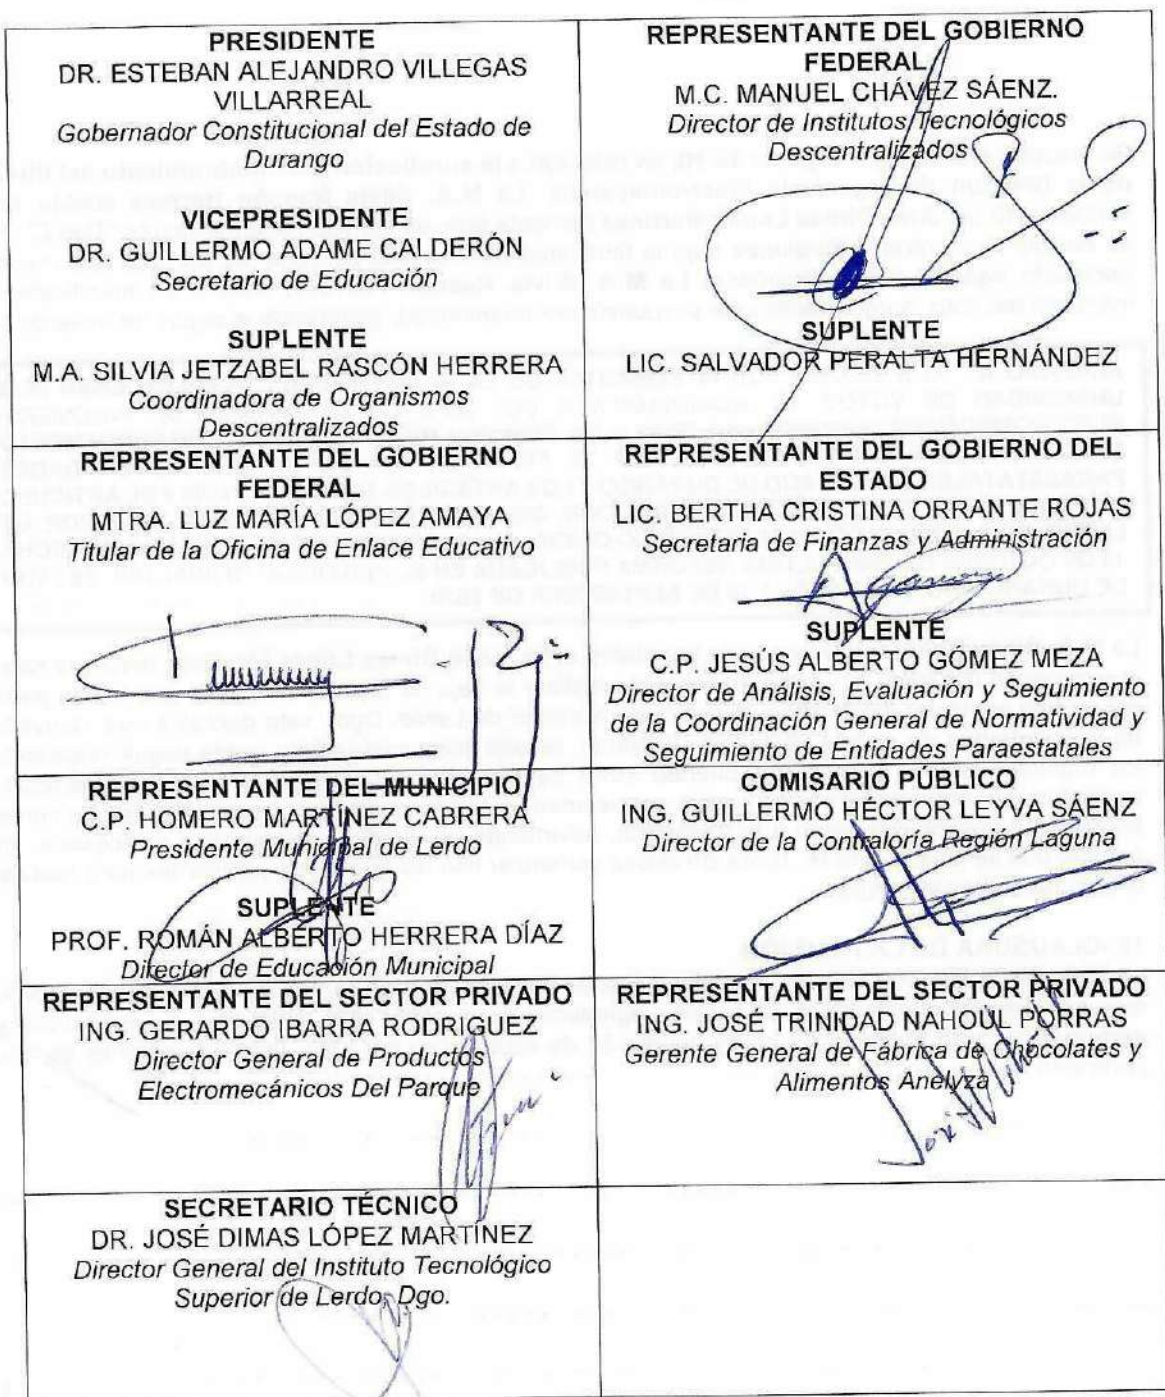 PRESIDENTE
DR. ESTEBAN ALEJANDRO VILLEGAS
VILLARREAL
Gobernador Constitucional del Estado de
Durango
VICEPRESIDENTE
DR. GUILLERMO ADAME CALDERÓN
Secretario de Educación
SUPLENTE
M.A. SILVIA JETZABEL RASCÓN HERRERA
Coordinadora de Organismos
Descentralizados
REPRESENTANTE DEL GOBIERNO
FEDERAL
M.C. MANUEL CHÁVEZ SÁENZ.
Director de Institutos Tecnológicos
Descentralizados
SUPLENTE
LIC. SALVADOR PERALTA HERNÁNDEZ
REPRESENTANTE DEL GOBIERNO
FEDERAL
MTRA. LUZ MARÍA LÓPEZ AMAYA
Titular de la Oficina de Enlace Educativo
REPRESENTANTE DEL GOBIERNO DEL
ESTADO
LIC. BERTHA CRISTINA ORRANTE ROJAS
Secretaria de Finanzas y Administración
SUPLENTE
C.P. JESÚS ALBERTO GÓMEZ MEZA
Director de Análisis, Evaluación y Seguimiento
de la Coordinación General de Normatividad y
Seguimiento de Entidades Paraestatales
REPRESENTANTE DEL MUNICIPIO
C.P. HOMERO MARTÍNEZ CABRERA
Presidente Municipal de Lerdo
SUPLENTE
PROF. ROMÁN ALBERTO HERRERA DÍAZ
Director de Educación Municipal
COMISARIO PÚBLICO
ING. GUILLERMO HÉCTOR LEYVA SÁENZ
Director de la Contraloría Región Laguna
REPRESENTANTE DEL SECTOR PRIVADO
ING. GERARDO IBARRA RODRIGUEZ
Director General de Productos
Electromecánicos Del Parque
REPRESENTANTE DEL SECTOR PRIVADO
ING. JOSÉ TRINIDAD NAHOUL PORRAS
Gerente General de Fábrica de Chocolates y
Alimentos Anelyza
SECRETARIO TÉCNICO
DR. JOSÉ DIMAS LÓPEZ MARTÍNEZ
Director General del Instituto Tecnológico
Superior de Lerdo, Dgo.